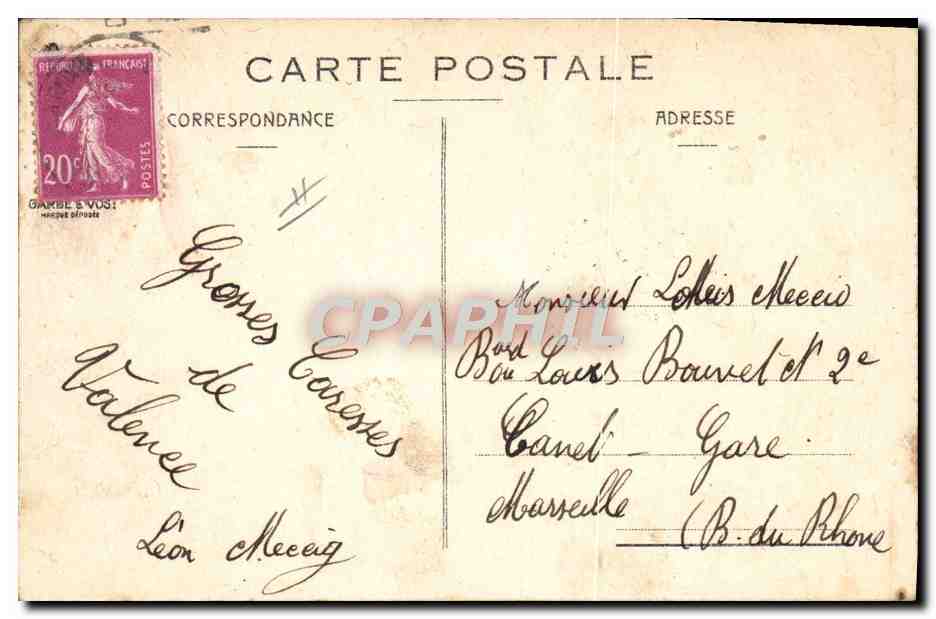 CARTE POSTALE
REPUBLIQUE FRANÇAISE
20c
POSTES
GARBE & VOST
MARQUE DÉPOSÉE
CORRESPONDANCE
Grosses Caresses
de
Valence
Léon
ADRESSE
Monsieur Louis Meccio
Bard Louis Bouvet N° 2e
Canet - Gare
Marseille
(B. du Rhone
CPAPHIL